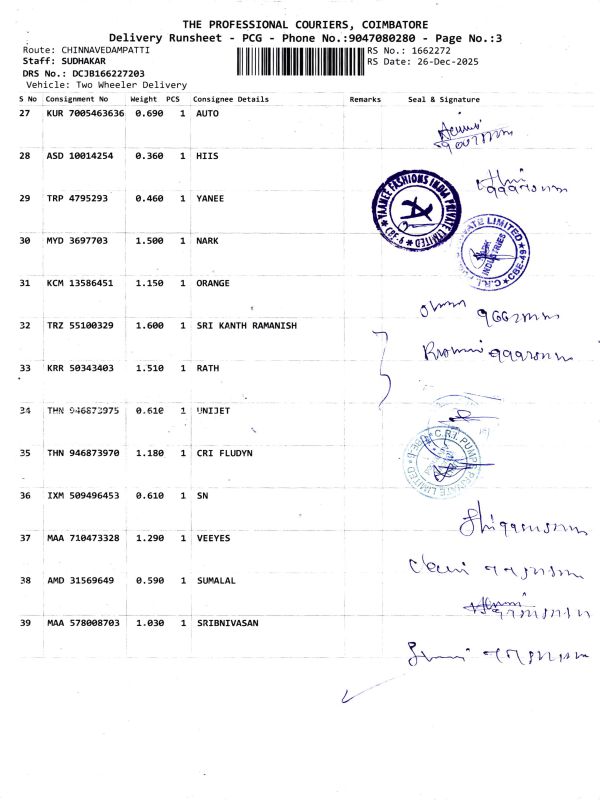 THE PROFESSIONAL COURIERS, COIMBATORE
Delivery Runsheet - PCG - Phone No.:9047080280 - Page No.:3
Route: CHINNAVEDAMPATTI RS No.: 1662272
Staff: SUDHAKAR RS Date: 26-Dec-2025
DRS No.: DCJB166227203
Vehicle: Two Wheeler Delivery
S No Consignment No Weight PCS Consignee Details Remarks Seal & Signature
27 KUR 7005463636 0.690 1 AUTO
28 ASD 10014254 0.360 1 HIIS
29 TRP 4795293 0.460 1 YANEE
YAANEE FASHIONS INDIA PRIVATE LIMITED CBE-6
30 MYD 3697703 1.500 1 NARK
INDUSTRIES PRIVATE LIMITED CBE-49
31 KCM 13586451 1.150 1 ORANGE
32 TRZ 55100329 1.600 1 SRI KANTH RAMANISH
33 KRR 50343403 1.510 1 RATH
34 THN 946873975 0.610 1 UNIJET
35 THN 946873970 1.180 1 CRI FLUDYN
C.R.I. PUMPS PRIVATE LIMITED
36 IXM 509496453 0.610 1 SN
37 MAA 710473328 1.290 1 VEEYES
38 AMD 31569649 0.590 1 SUMALAL
39 MAA 578008703 1.030 1 SRIBNIVASAN